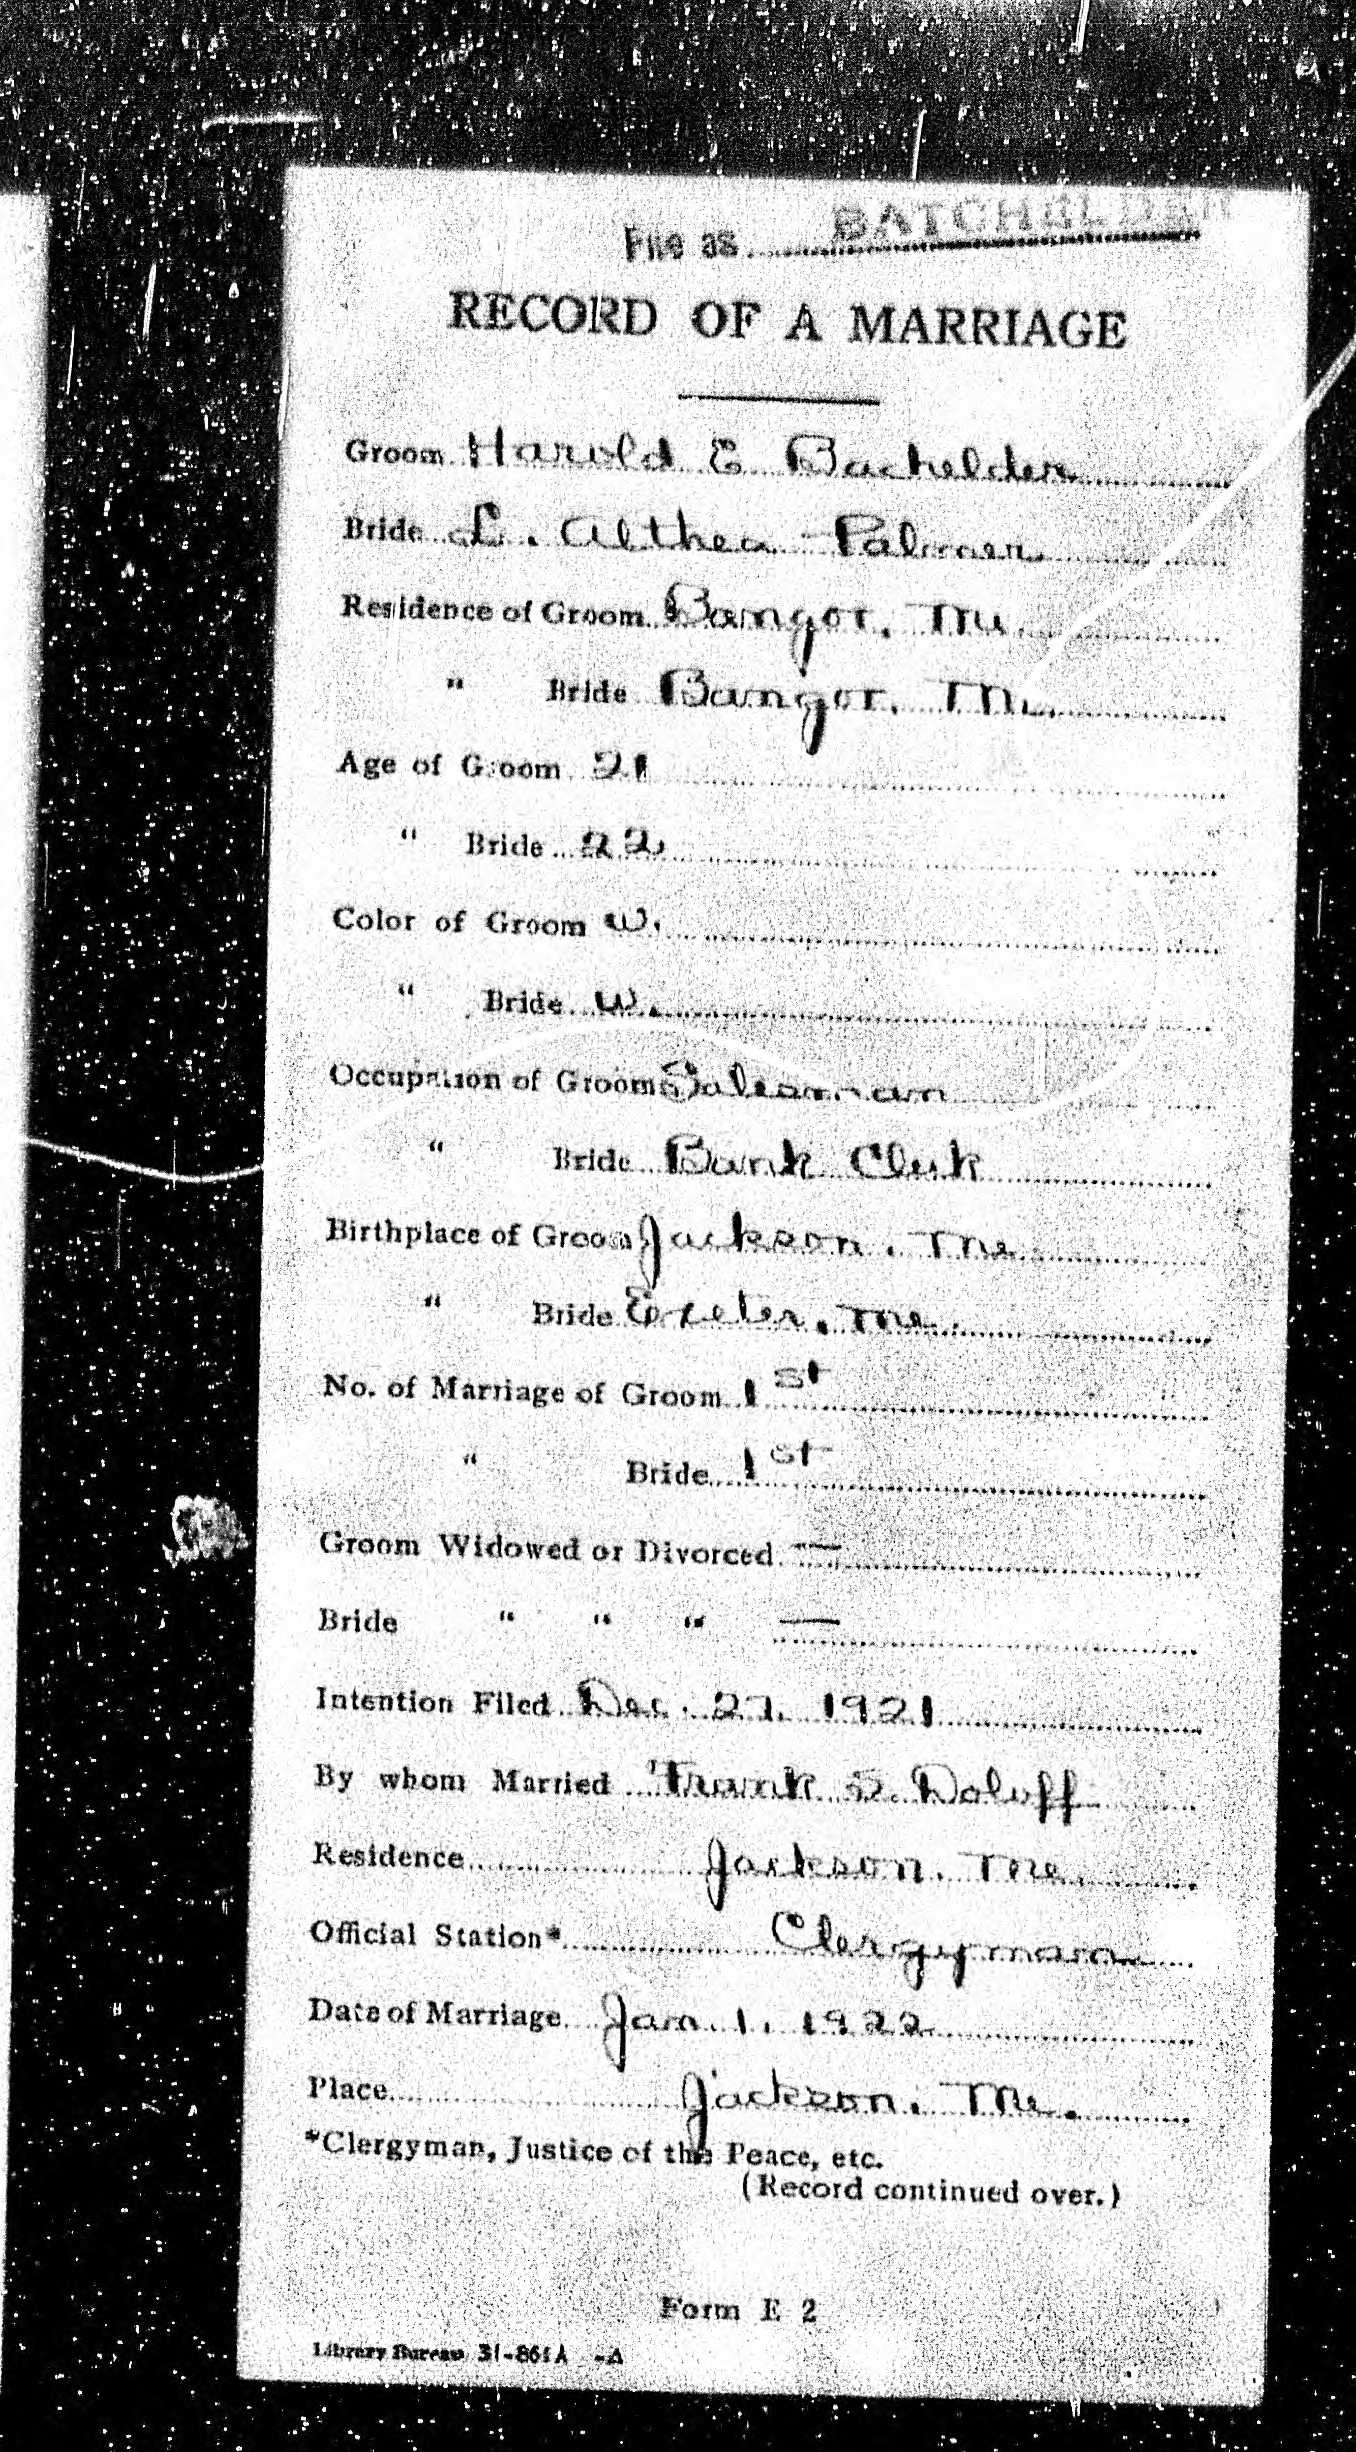 File as BATCHELDER
RECORD OF A MARRIAGE
Groom Harold E Bachelder
Bride L. Althea Palmer
Residence of Groom Bangor, Me.
" Bride Bangor, Me.
Age of Groom 21
" Bride 22
Color of Groom w.
" Bride w.
Occupation of Groom Salesman
" Bride Bank Clerk
Birthplace of Groom Jackson, Me.
" Bride Exeter, Me.
No. of Marriage of Groom 1st
" Bride 1st
Groom Widowed or Divorced —
Bride " " " —
Intention Filed Dec. 27, 1921
By whom Married Frank S. Doloff
Residence Jackson, Me.
Official Station* Clergyman
Date of Marriage Jan. 1, 1922
Place Jackson, Me.
*Clergyman, Justice of the Peace, etc.
(Record continued over.)
Form E 2
Library Bureau 31-861A -A